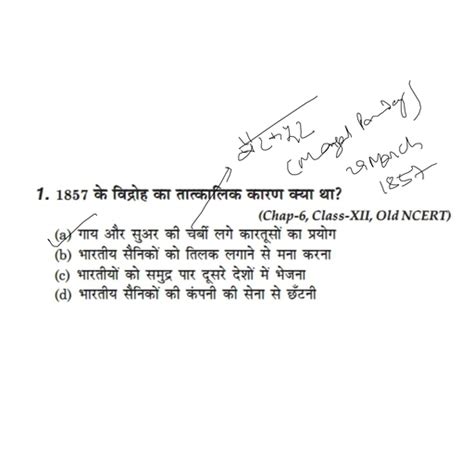 बैरकपुर
(Mangal Panday)
29 March
1857
1. 1857 के विद्रोह का तात्कालिक कारण क्या था?
(Chap-6, Class-XII, Old NCERT)
(a) गाय और सुअर की चर्बी लगे कारतूसों का प्रयोग
(b) भारतीय सैनिकों को तिलक लगाने से मना करना
(c) भारतीयों को समुद्र पार दूसरे देशों में भेजना
(d) भारतीय सैनिकों की कंपनी की सेना से छँटनी